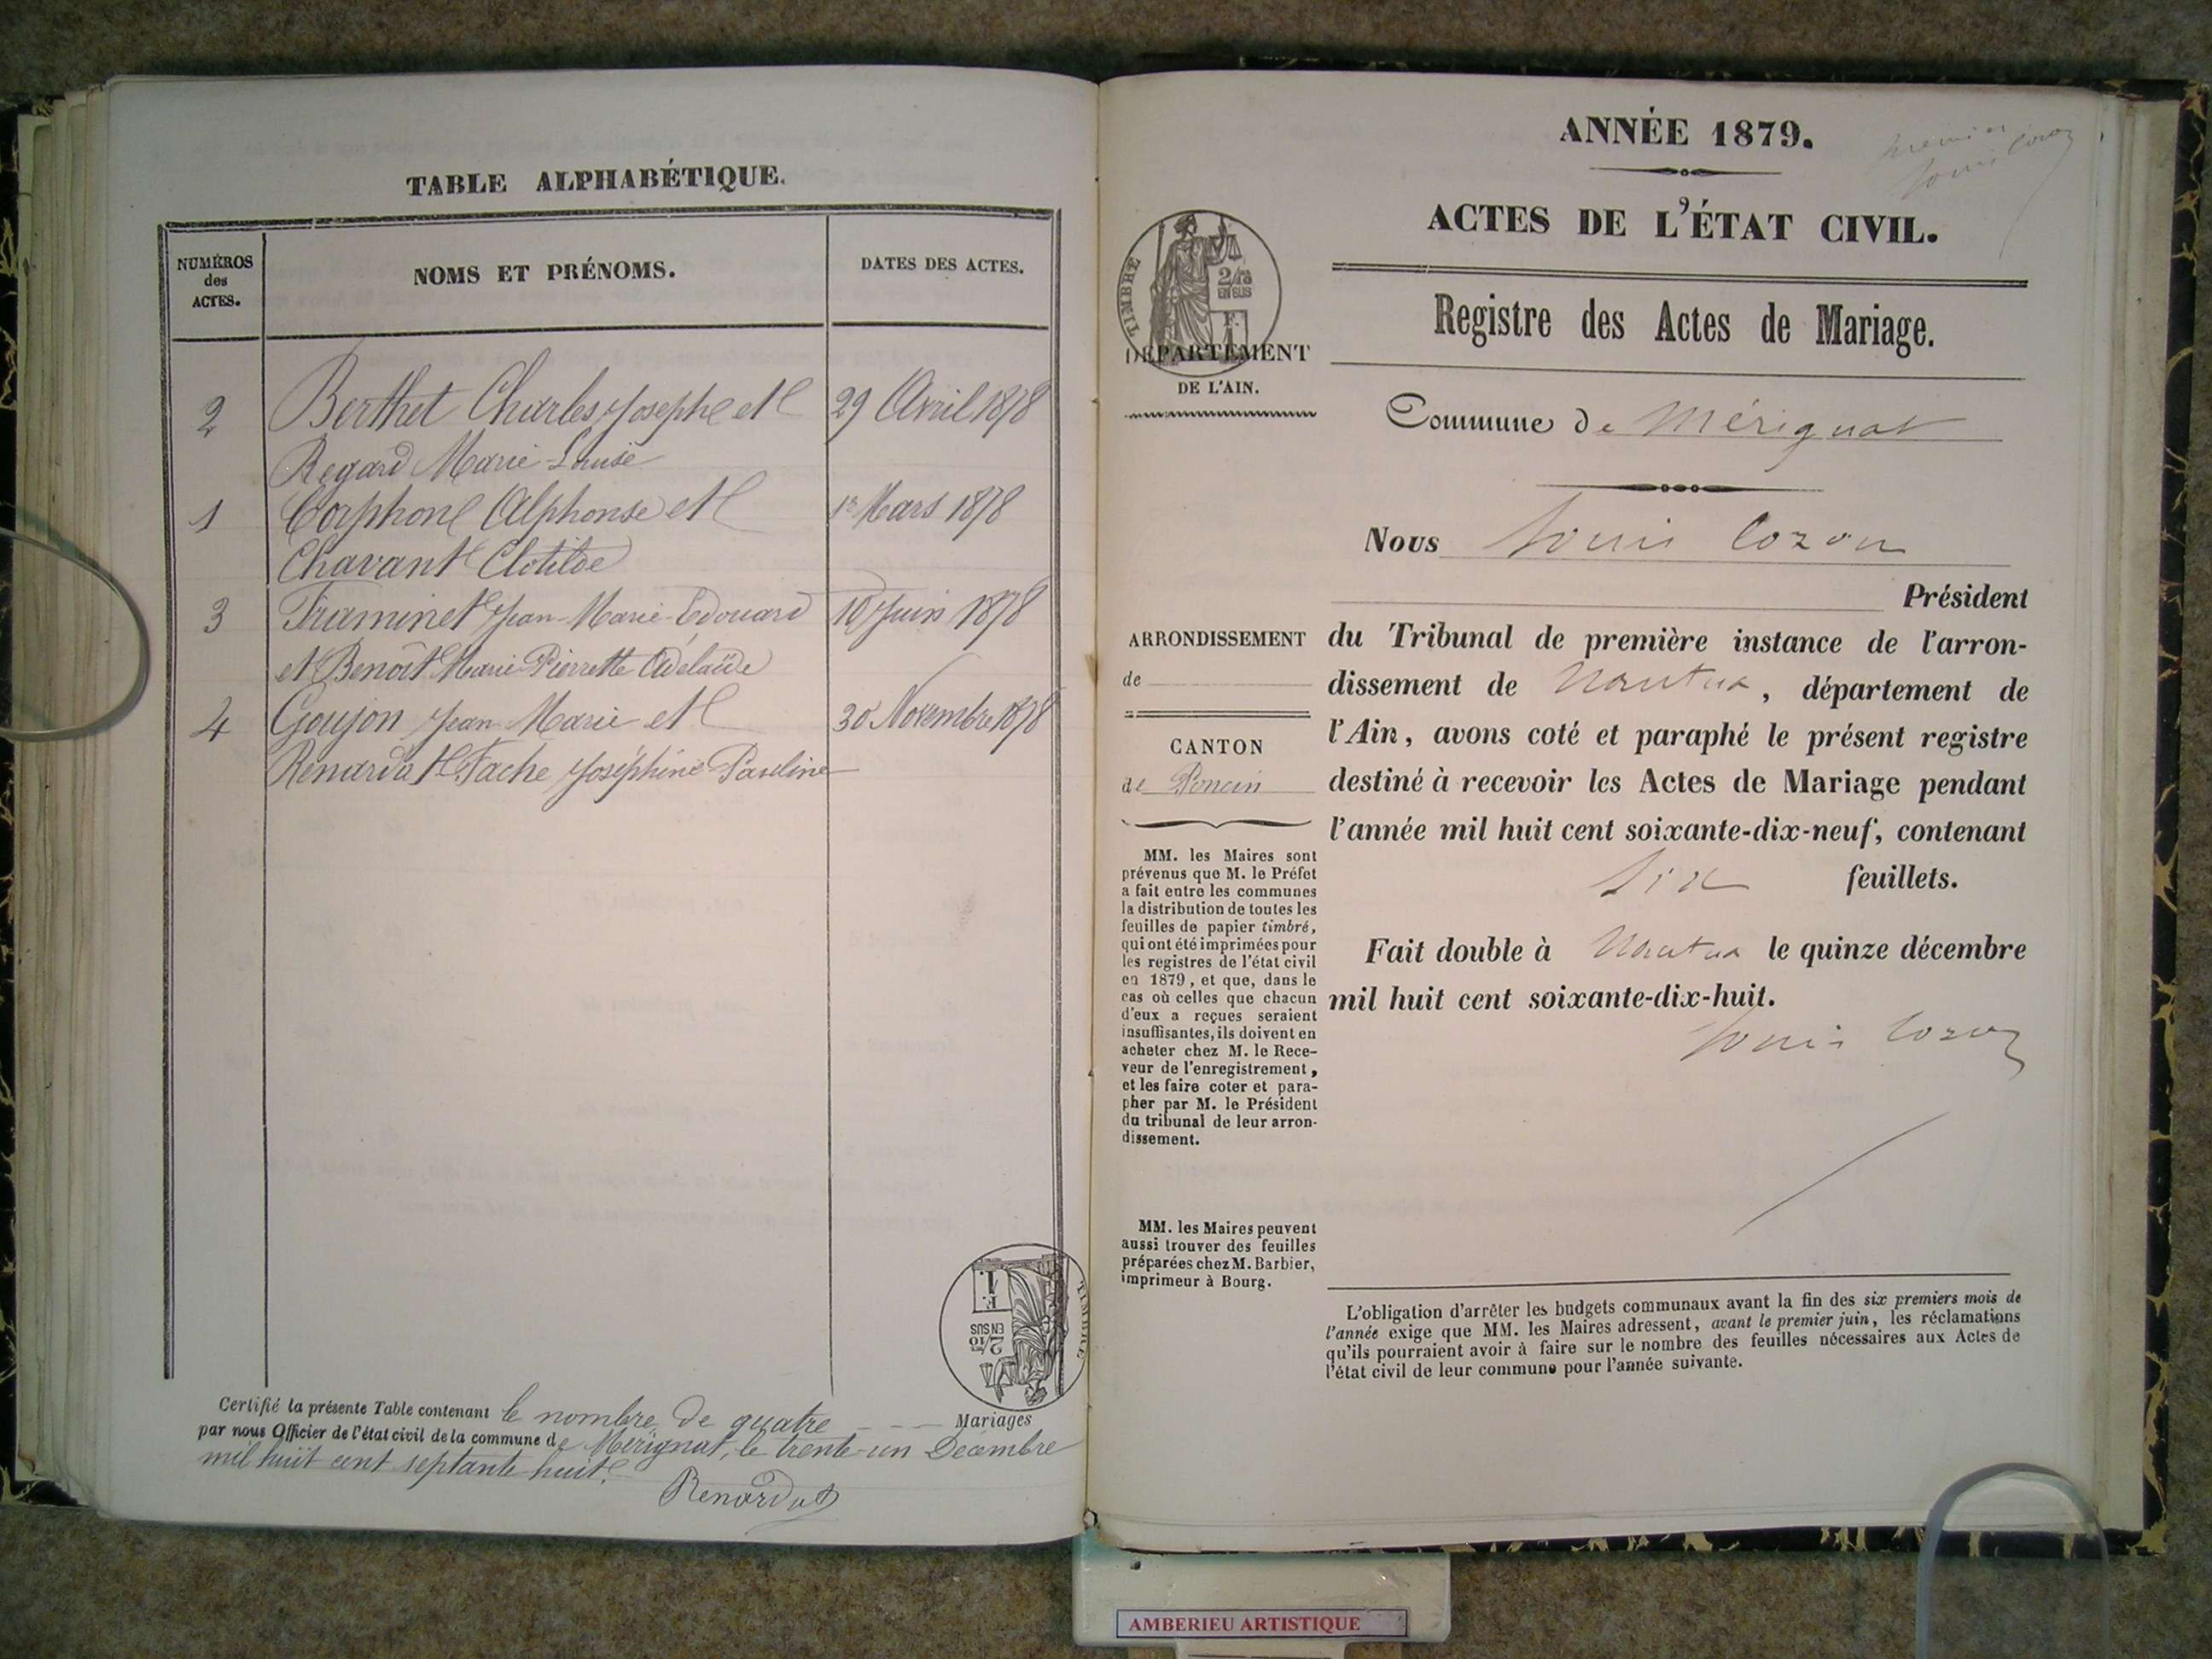 TABLE ALPHABÉTIQUE.
NUMÉROS
des
ACTES.
NOMS ET PRÉNOMS.
DATES DES ACTES.
2 Berthet Charles Joseph et 29 Avril 1878
Regard Marie-Louise
1 Alphonse et 1er Mars 1878
Chavant Clotilde
3 Jean-Marie-Edouard 10 Juin 1878
et Benoît Marie Pierrette Adélaïde
4 Goujon Jean Marie et 30 Novembre 1878
Renardat-Fache Joséphine Pauline
TIMBRE
2/10es
EN SUS
1 F.
Certifié la présente Table contenant le nombre de quatre Mariages
par nous Officier de l'état civil de la commune de Mérignat, le trente-un Décembre
mil huit cent septante-huit.
Renardat
premier
Louis Cozon
ANNÉE 1879.
ACTES DE L'ÉTAT CIVIL.
Registre des Actes de Mariage.
TIMBRE
2/10es
EN SUS
F.
DÉPARTEMENT
DE L'AIN.
Commune de Mérignat
Nous Louis Cozon
Président
ARRONDISSEMENT
de
CANTON
de Poncin
du Tribunal de première instance de l'arron-
dissement de Nantua, département de
l'Ain, avons coté et paraphé le présent registre
destiné à recevoir les Actes de Mariage pendant
l'année mil huit cent soixante-dix-neuf, contenant
six feuillets.
Fait double à Nantua le quinze décembre
mil huit cent soixante-dix-huit.
Louis Cozon
MM. les Maires sont
prévenus que M. le Préfet
a fait entre les communes
la distribution de toutes les
feuilles de papier timbré,
qui ont été imprimées pour
les registres de l'état civil
en 1879, et que, dans le
cas où celles que chacun
d'eux a reçues seraient
insuffisantes, ils doivent en
acheter chez M. le Rece-
veur de l'enregistrement,
et les faire coter et para-
pher par M. le Président
du tribunal de leur arron-
dissement.
MM. les Maires peuvent
aussi trouver des feuilles
préparées chez M. Barbier,
imprimeur à Bourg.
L'obligation d'arrêter les budgets communaux avant la fin des six premiers mois de
l'année exige que MM. les Maires adressent, avant le premier juin, les réclamations
qu'ils pourraient avoir à faire sur le nombre des feuilles nécessaires aux Actes de
l'état civil de leur commune pour l'année suivante.
AMBERIEU ARTISTIQUE